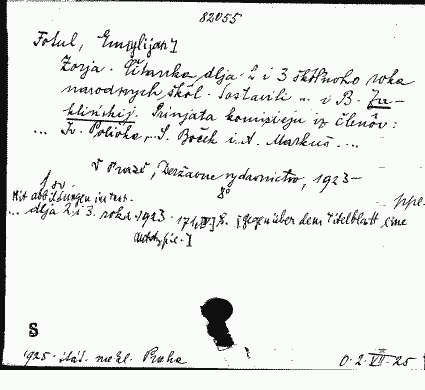 82055
Fotul, Em[ylijan]
Zorja. Čitanka dlja 2 i 3 škôlnoho roka
narodnych škôl. Sostavili .. i B. Za-
klińskij. Prinjata komisieju iz členôv:
... Iv. Polivka, S. Boček i A. Markuš. ...
V Prazě, Deržavne vydavnictvo, 1923-
8°
1 sv.
Mit Abbildungen im Text.
... dlja 2 i 3. roka. 1923. 171, [IV] S. [gegenüber dem Titelblatt eine
Autotypie.]
S
1925. Praha
0. 2. VII. 25